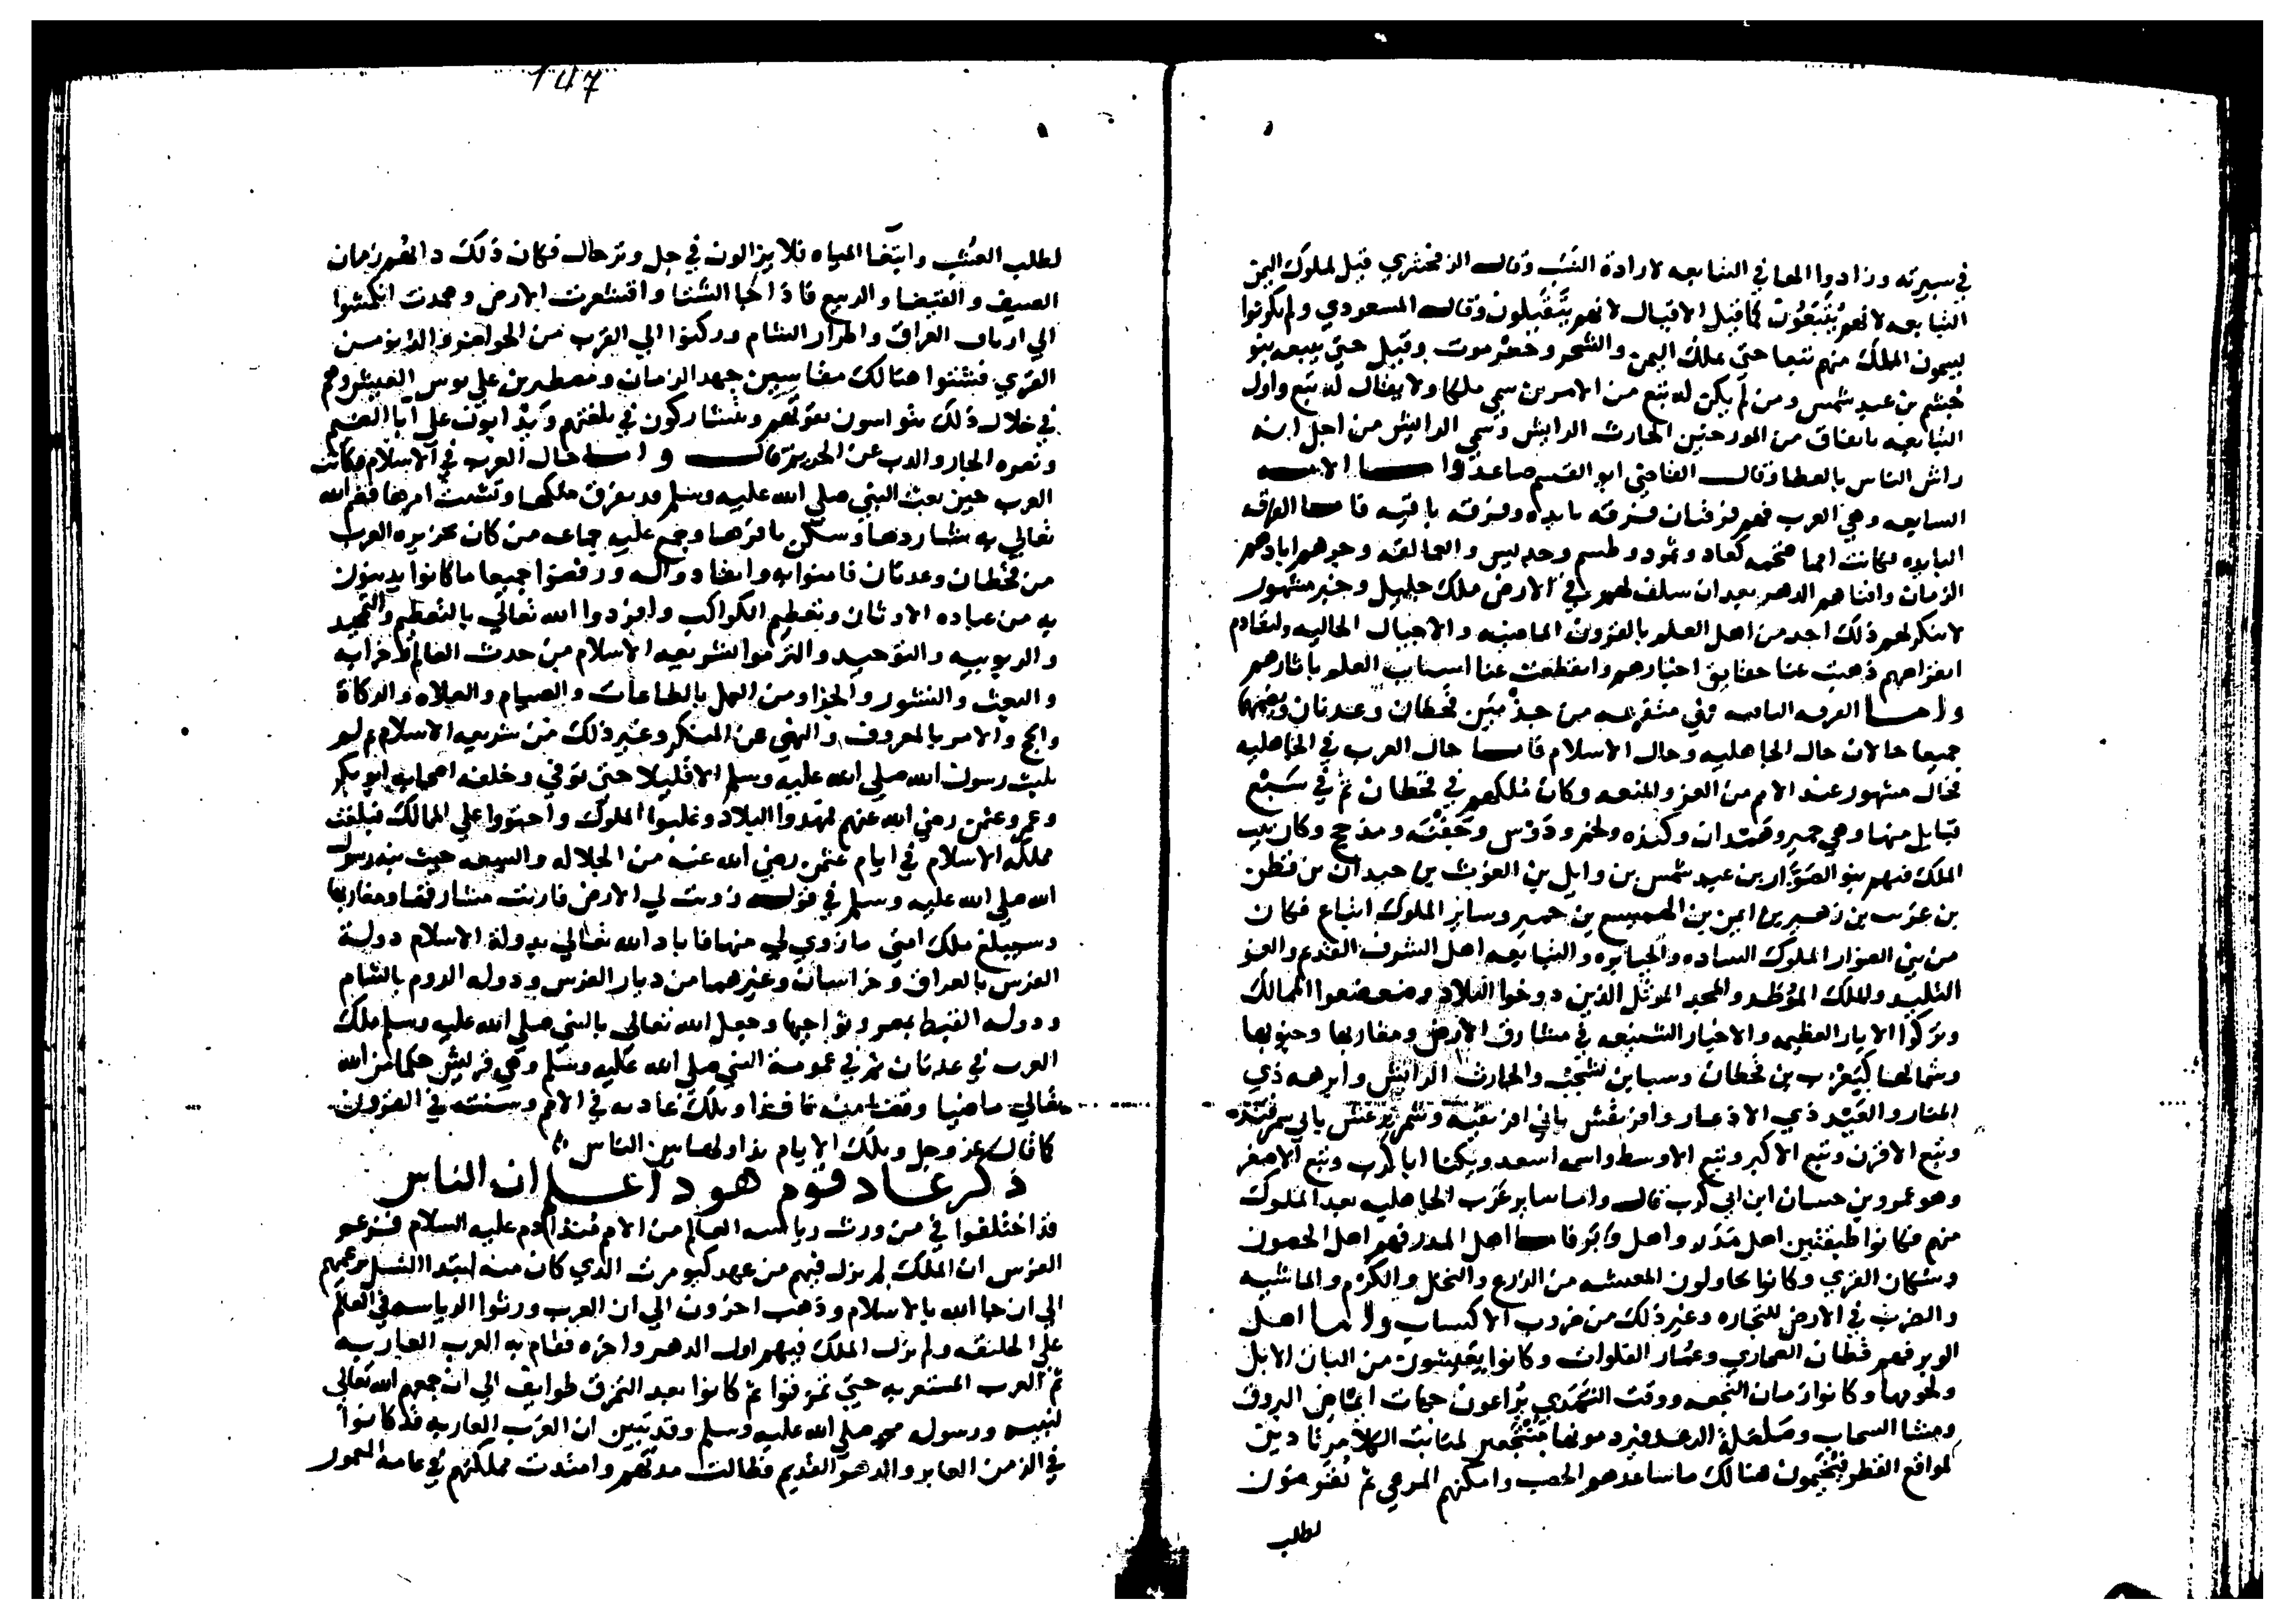 في سيرته وزادوا الها في التبابعه لارادة النسب وقال الزمخشري قيل لملوك اليمن
التبابعه لانهم يُتْبَعُون كما قيل الاقيال لانهم يَتَقَيَّلون وقال المسعودي ولم يكونوا
يسمون الملك منهم تبعا حتى يملك اليمن والشحر وحضرموت وقيل حتى يتبعه بنو
جُشم بن عبد شمس ومن لم يكن له تبع من الامرين سمي ملكا ولا يقال له تبع واول
التبابعه باتفاق من المورخين الحارث الرايش وسمي الرايش من اجل انه
راش الناس بالعطا وقال القاضي ابو القسم صاعد واما الامه
السابعه وهي العرب فهم فرقتان فرقه بايده وفرقه باقيه فاما الفرقه
البايده فكانت امما ضخمه كعاد وثمود وطسم وجديس والعمالقه وجرهم ابادهم
الزمان وافناهم الدهر بعد ان سلف لهم في الارض ملك جليل وخبر مشهور
لا ينكر لهم ذلك احد من اهل العلم بالقرون الماضيه والاجيال الخاليه ولتقادم
انقراضهم ذهبت عنا حقايق اخبارهم وانقطعت عنا اسباب العلم باثارهم
واما الفرقه الباقيه فهي متفرعه من جذمين قحطان وعدنان ويضمها
جميعا حالان حال الجاهليه وحال الاسلام فاما حال العرب في الجاهليه
فحال مشهور عند الامم من العز والمنعه وكان مُلكهم في قحطان ثم في سَبْع
قبايل منها وهي حمير وهمدان وكنده ولخم ودَوْس وجَفْنَه ومذحج وكان بيت
الملك فيهم بنو الصَوَّار بن عبد شمس بن وايل بن الغوث بن حيدان بن قطن
بن عريب بن زهير بن ايمن بن الهميسع بن حمير وساير الملوك اتباع فكان
من بني الصوار الملوك الساده والجبابره والتبابعه اهل الشرف القديم والعز
التليد والملك المؤطد والمجد الموثل الذين دوخوا البلاد وضعضعوا الممالك
وتركوا الاثار العظيمه والاخبار الشنيعه في مشارق الارض ومغاربها وجنوبها
وشمالها كيَعْرُب بن قحطان وسبا بن يشجب والحارث الرايش وابرهه ذي
المنار والعَبْد ذي الاذعار وافريقش باني افريقيَّة وشمر يَرْعَش باني سمرقند
وتبع الاقرن وتبع الاكبر وتبع الاوسط واسمه اسعد ويكنا ابا كرب وتبع الاصغر
وهو عمرو بن حسان ابن ابي كرب قال واما ساير عَرَب الجاهليه بعد الملوك
منهم فكانوا طبقتين اهل مَدَر واهل وَبَر فاما اهل المدر فهم اهل الحصون
وسُكان القري وكانوا يحاولون المعيشه من الزرع والنخل والكرْم والماشيه
والضرب في الارض للتجاره وغير ذلك من ضروب الاكتساب واما اهل
الوبر فهم قُطان الصحاري وعمار الفلوات وكانوا يعيشون من البان الابل
ولحومها وكانوا زمان النجعه ووقت التبدي يُراعون جهات ايماض البروق
ومنشا السحاب وجلجلة الرعد فيردمونها منتجعين لمنابت الكلا مرتادين
لمواقع القطر فيُخيمون هنالك ما ساعدهم الخصب وامكنهم المرعي ثم يُقَوِّضون
لطلب
147
لطلب العُشب وابتغا المياه فلا يزالون في حِل وترحال فكان ذلك دابهم زمان
الصيف والقيض والربيع فاذا جا الشتا واقشعرت الارض وهمدت انكمشوا
الي ارياف العراق واطرار الشام وركنوا الي القرب من الحواضر والدنو من
القري فشتوا هنالك مقاسين جهد الزمان ومصطبرين علي بوس العيش وهم
في خلال ذلك يتواسون بقوتهم ويتشاركون في بلغتهم ويدابون علي ابا الضيم
ونصره الجار والذب عن الحريم قال واما حال العرب في الاسلام فكانت
العرب حين بعث النبي صلي الله عليه وسلم قد تفرق ملكها وتشتت امرها فضم الله
تعالي به شاردها وسكن نافرها وجمع عليه جماعه من كان بجزيره العرب
من قحطان وعدنان فامنوا به وانقادوا له ورفضوا جميعا ما كانوا يدينون
به من عباده الاوثان وتعظيم الكواكب وافردوا الله تعالي بالتعظيم والتمجيد
والربوبيه والتوحيد والتزموا شريعه الاسلام من حدث العالم وخرابه
والبعث والنشور والجزا ومن العمل بالطاعات والصيام والصلاه والزكاة
والحج والامر بالمعروف والنهي عن المنكر وغير ذلك من شريعه الاسلام ثم لم
يلبث رسول الله صلي الله عليه وسلم الا قليلا حتى توفي وخلفه اصحابه ابو بكر
وعمر وعثمن رضي الله عنهم فمهدوا البلاد وغلبوا الملوك واحتووا علي الممالك فبلغت
مملكه الاسلام في ايام عثمن رضي الله عنه من الجلاله والسعه حيث نبه رسول
الله صلي الله عليه وسلم في قوله زويت لي الارض فاريت مشارقها ومغاربها
وسيبلغ ملك امتي ما زوي لي منها فاباد الله تعالي بدولة الاسلام دولة
الفرس بالعراق وخراسان وغيرهما من ديار الفرس ودوله الروم بالشام
ودوله القبط بمصر ونواحيها وجعل الله تعالي بالنبي صلي الله عليه وسلم ملك
العرب في عدنان ثم في عمومة النبي صلي الله عليه وسلم وهي قريش حكما من الله
تعالي ماضيا وقضا منه نافذا وتلك عادته في الامم وسنته في القرون
كما قال عز وجل وتلك الايام نداولها بين الناس
ذكر عاد قوم هود اعلم ان الناس
قد اختلفوا في من ورث رياسه العالم من الامم مُنذ ادم عليه السلام فزعم
الفرس ان الملك لم يزل فيهم من عهد كيومرث الذي كان منه ابتدا النسل بزعمهم
الي ان جا الله بالاسلام وذهب اخرون الي ان العرب ورثوا الرياسه في العالم
علي الخليقه ولم يزل الملك فيهم اول الدهر واخره فقام به العرب العاربه
ثم العرب المستعربه حتى تمزقوا ثم كانوا بعد التمزق طوايف الي ان جمعهم الله تعالي
لنبيه ورسوله محمد صلي الله عليه وسلم وقد تبين ان العرب العاربه قد كانوا
في الزمن الغابر والدهر القديم فطالت مدتهم وامتدت مملكتهم في عامه المعمور